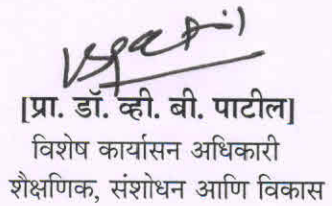 [प्रा. डॉ. व्ही. बी. पाटील]
विशेष कार्यासन अधिकारी
शैक्षणिक, संशोधन आणि विकास